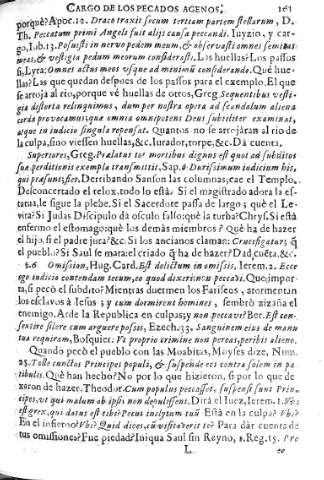 CARGO DE LOS PECADOS AGENOS. 161
porquè? Apoc. 10. Draco traxit secum tertiam partem stellarum, D.
Th. Peccatum primi Angeli fuit alijs causa peccandi. Iuyzio, y car-
go, Iob. 13. Posuisti in nervo pedem meum, & observasti omnes semitas
meas, & vestigia pedum meorum considerasti. Las huellas? Los passos
si, Lyra: Omnes actus meos usque ad minimũ considerando. Què hue-
llas? Las que quedan despues de los passos para el exemplo. El que
se arroja al rio, porque vé huellas de otros, Greg. Sequentibus vesti-
gia distorta relinquimus, dum per nostra opera ad scandalum aliena
corda provocamus; que omnia omnipotens Deus subtiliter examinat,
atque in iudicio singula repensat. Quantos no se arrojáran al rio de
la culpa, sino viessen huellas, &c. Iurador, torpe, &c. Dà cuenta.
Superiores, Greg. Prælatus tot mortibus dignus est quot ad subditos
suæ perditionis exempla transmittit, Sap. 6. Durissimum iudicium his,
qui præsunt, fiet. Derribando Sanson las columnas, cae el Templo.
Desconcertado el relox, todo lo està. Si el magistrado adora la es-
tatua, le sigue la plebe. Si el Sacerdote passa de largo; què el Le-
vita? Si Judas Discipulo dà osculo falso; què la turba? Chrys. Si està
enfermo el estomago: què los demàs miembros? Què ha de hazer
el hijo, si el padre jura? &c. Si los ancianos claman: Crucifigatur; q̃
el pueblo? Si Saul se mata: el criado q̃ ha de hazer? Dad cuẽta, &c.
5. 6 Omission, Hug. Card. Est delictum in omissis, Ierem. 2. Ecce
ego iudicio contendam tecum, eo quod dixeris: non peccavi. Que impor-
ta, si pecò el subdito? Mientras duermen los Fariseos, atormentan
los esclavos à Iesus; y cum dormirent homines, sembrò zizaña el
enemigo. Arde la Republica en culpas; y non peccavi? Ber. Est con-
sentire silere cum arguere possis, Ezech. 33. Sanguinem eius de manu
tua requiram, Bosquier. Ve proprio crimine non pereas, peribis alieno.
Quando pecò el pueblo con las Moabitas, Moyses dize, Num.
25. Tolle cunctos Principes populi, & suspende eos contra solem in pa-
tibulis. Què han hecho? No por lo que hizieron, si por lo que de
xaron de hazer. Theodor. Cum populus peccasset, suspensi sunt Prin-
cipes, ut qui malum ab ipsis non depulissent. Dirà el Iuez, Ierem. 1. Vbi
est grex, qui datus est tibi? Pecus inclytum tuũ? Està en la culpa? Vbi?
En el infierno? Vbi? Quid dices, cũ visitaverit te? Para dàr cuenta de
tus omissiones? Fue piedad? Iniqua Saul sin Reyno, 1. Reg. 15. Pro
L eo